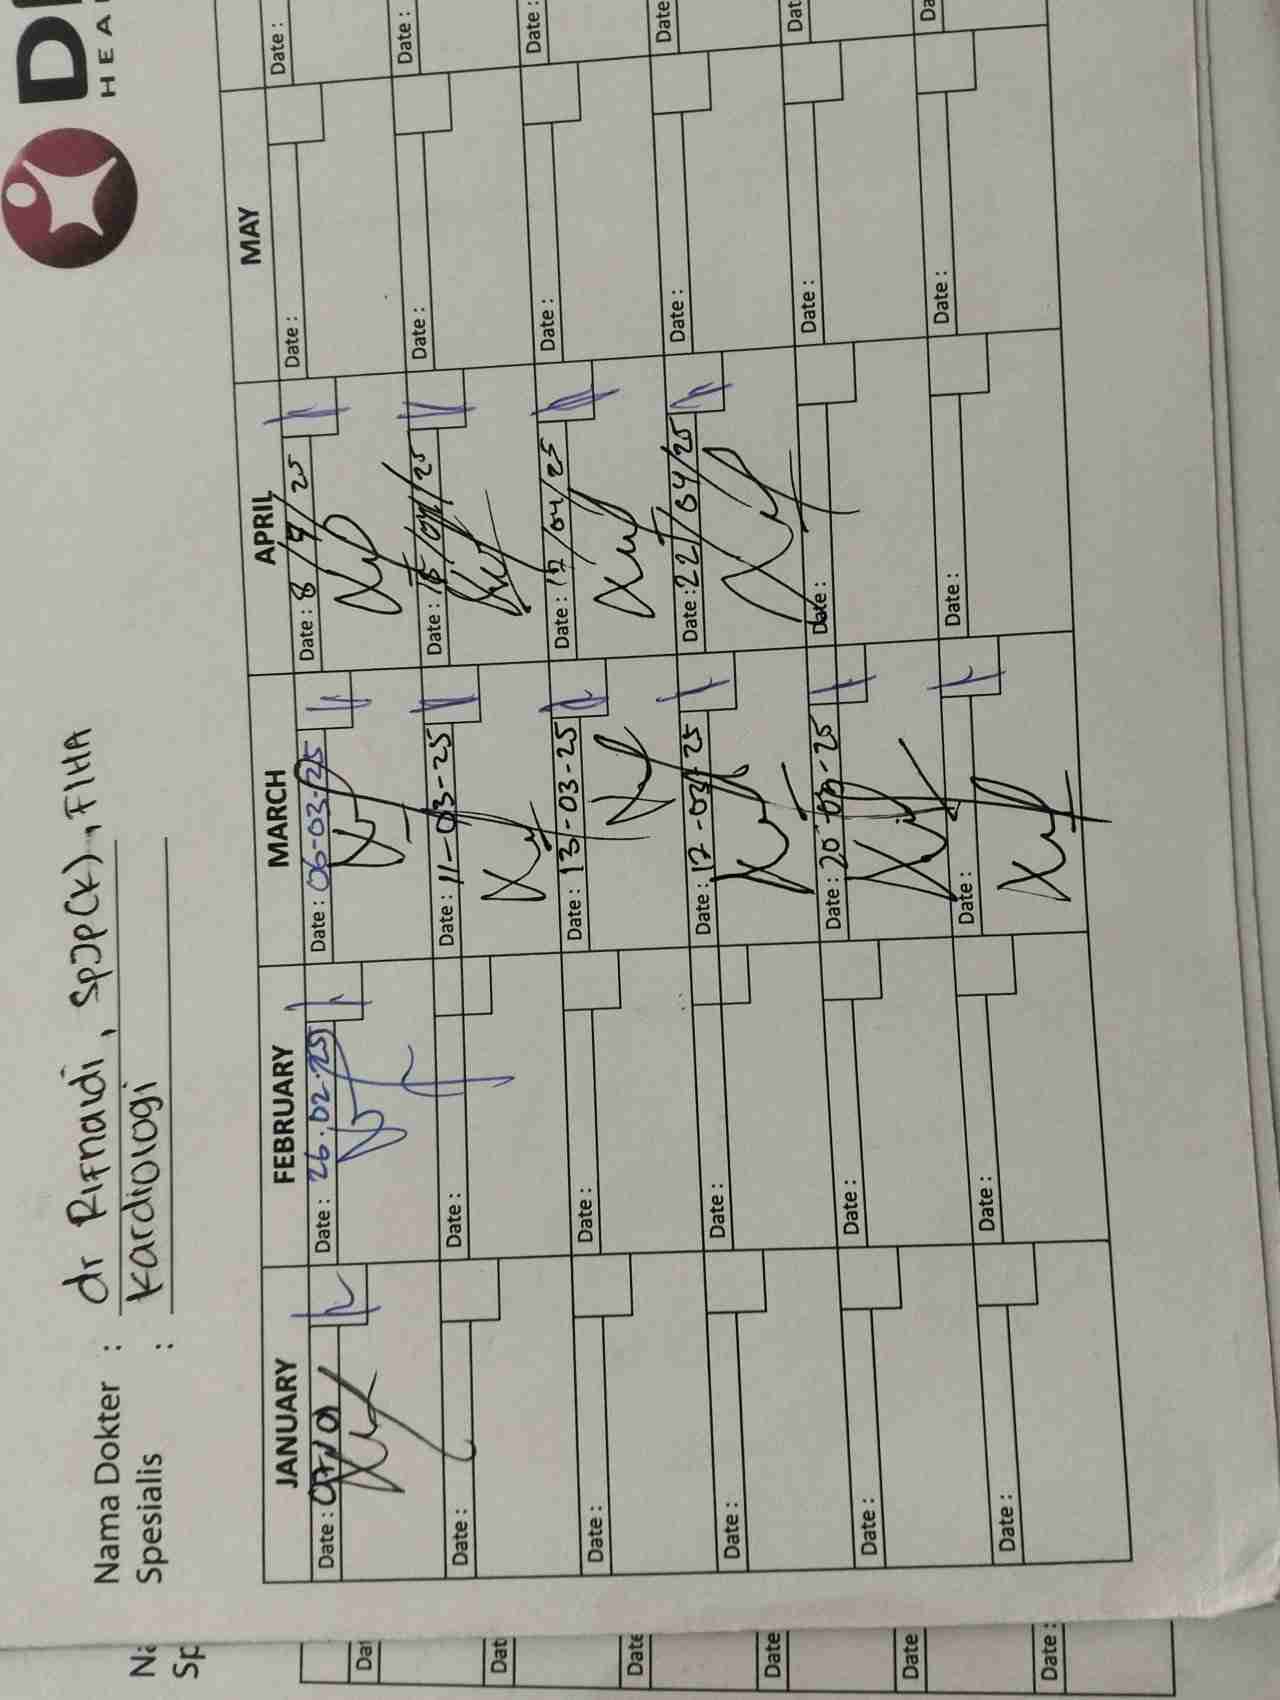 Nama Dokter : dr Rifnaldi, SpJP(K), FIHA
Spesialis : Kardiologi
HEA
JANUARY FEBRUARY MARCH APRIL MAY
Date : 07/01 Date : 26.02.25 Date : 06-03-25 Date : 8/4/25 Date : Date :
Date : Date : Date : 11-03-25 Date : 15/04/25 Date : Date :
Date : Date : Date : 13-03-25 Date : 17/04/25 Date : Date :
Date : Date : Date : 17-03-25 Date : 22/04/25 Date : Date
Date : Date : Date : 20-03-25 Date : Date : Dat
Date : Date : Date : Date : Date : Da
Na
Sp
Dat
Dat
Date
Date
Date
Date :